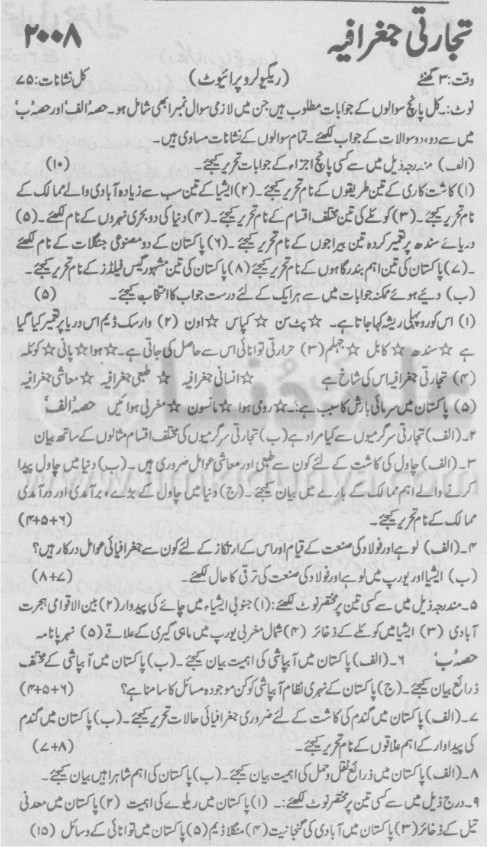 تجارتی جغرافیہ ۲۰۰۸
وقت: ۳ گھنٹے (ریگولر و پرائیوٹ) کل نشانات: ۷۵
نوٹ:۔ کل پانچ سوالوں کے جوابات مطلوب ہیں جن میں لازمی سوال نمبر ا بھی شامل ہو۔ حصہ ’الف‘ اور حصہ ’ب‘
میں سے دو، دو سوالات کے جواب لکھئے۔ تمام سوالوں کے نشانات مساوی ہیں۔
(الف) مندرجہ ذیل میں سے کسی پانچ اجزاء کے جوابات تحریر کیجئے۔ (۱۰)
(۱) کاشت کاری کے تین طریقوں کے نام تحریر کیجئے۔ (۲) ایشیا کے تین سب سے زیادہ آبادی والے ممالک کے
نام تحریر کیجئے۔ (۳) کوئلے کی تین مختلف اقسام کے نام تحریر کیجئے۔ (۴) دنیا کی دو بحری نہروں کے نام لکھئے۔ (۵)
دریائے سندھ پر تعمیر کردہ تین بیراجوں کے نام تحریر کیجئے۔ (۶) پاکستان کے دو مصنوعی جنگلات کے نام لکھئے
۔ (۷) پاکستان کی تین اہم بندرگاہوں کے نام تحریر کیجئے (۸) پاکستان کی تین مشہور گیس فیلڈز کے نام تحریر کیجئے۔
(ب) دیئے ہوئے ممکنہ جوابات میں سے ہر ایک کے لئے درست جواب کا انتخاب کیجئے۔ (۵)
(۱) اس کو روپہلی ریشہ کہا جاتا ہے۔ ☆ پٹ سن ☆ کپاس ☆ اون (۲) وارسک ڈیم اس دریا پر تعمیر کیا گیا
ہے ☆ سندھ ☆ کابل ☆ جہلم (۳) حرارتی توانائی اس سے حاصل کی جاتی ہے۔ ☆ ہوا ☆ پانی ☆ کوئلہ
(۴) تجارتی جغرافیہ اس کی شاخ ہے ☆ انسانی جغرافیہ ☆ طبعی جغرافیہ ☆ معاشی جغرافیہ
(۵) پاکستان میں سرمائی بارش کا سبب ہے:۔ ☆ روئی ہوا ☆ مانسون ☆ مغربی ہوائیں حصہ ’الف‘
۲۔ (الف) تجارتی سرگرمیوں سے کیا مراد ہے (ب) تجارتی سرگرمیوں کی مختلف اقسام مثالوں کے ساتھ بیان
۳۔ (الف) چاول کی کاشت کے لئے کون سے طبعی اور معاشی عوامل ضروری ہیں۔ (ب) دنیا میں چاول پیدا
کرنے والے اہم ممالک کے بارے میں بیان کیجئے۔ (ج) دنیا میں چاول کے بڑے، برآمدی اور درآمدی
ممالک کے نام تحریر کیجئے۔ (۴+۵+۶)
۴۔ (الف) لوہے اور فولاد کی صنعت کے قیام اور اس کے ارتکاز کے لئے کون سے جغرافیائی عوامل درکار ہیں؟
(ب) ایشیا اور یورپ میں لوہے اور فولاد کی صنعت کی ترقی کا حال لکھئے۔ (۸+۷)
۵۔ مندرجہ ذیل میں سے کسی تین پر مختصر نوٹ لکھئے:۔ (۱) جنوبی ایشیاء میں چائے کی پیداوار (۲) بین الاقوامی ہجرت
آبادی (۳) ایشیا میں کوئلے کے ذخائر (۴) شمال مغربی یورپ میں ماہی گیری کے علاقے (۵) نہر پانامہ
حصہ ’ب‘ ۶۔ (الف) پاکستان میں آبپاشی کی اہمیت بیان کیجئے۔ (ب) پاکستان میں آبپاشی کے مختلف
ذرائع بیان کیجئے۔ (ج) پاکستان کے نہری نظام آبپاشی کو کن موجودہ مسائل کا سامنا ہے؟ (۴+۵+۶)
۷۔ (الف) پاکستان میں گندم کی کاشت کے لئے ضروری جغرافیائی حالات تحریر کیجئے۔ (ب) پاکستان میں گندم
کی پیداوار کے اہم علاقوں کے نام تحریر کیجئے۔ (۷+۸)
۸۔ (الف) پاکستان میں ذرائع نقل و حمل کی اہمیت بیان کیجئے۔ (ب) پاکستان کی اہم شاہراہیں بیان کیجئے۔
۹۔ درج ذیل میں سے کسی تین پر مختصر نوٹ لکھئے:۔ (۱) پاکستان میں ریلوے کی اہمیت (۲) پاکستان میں معدنی
تیل کے ذخائر (۳) پاکستان میں آبادی کی گنجانیت (۴) منگلا ڈیم (۵) پاکستان میں توانائی کے وسائل (۱۵)